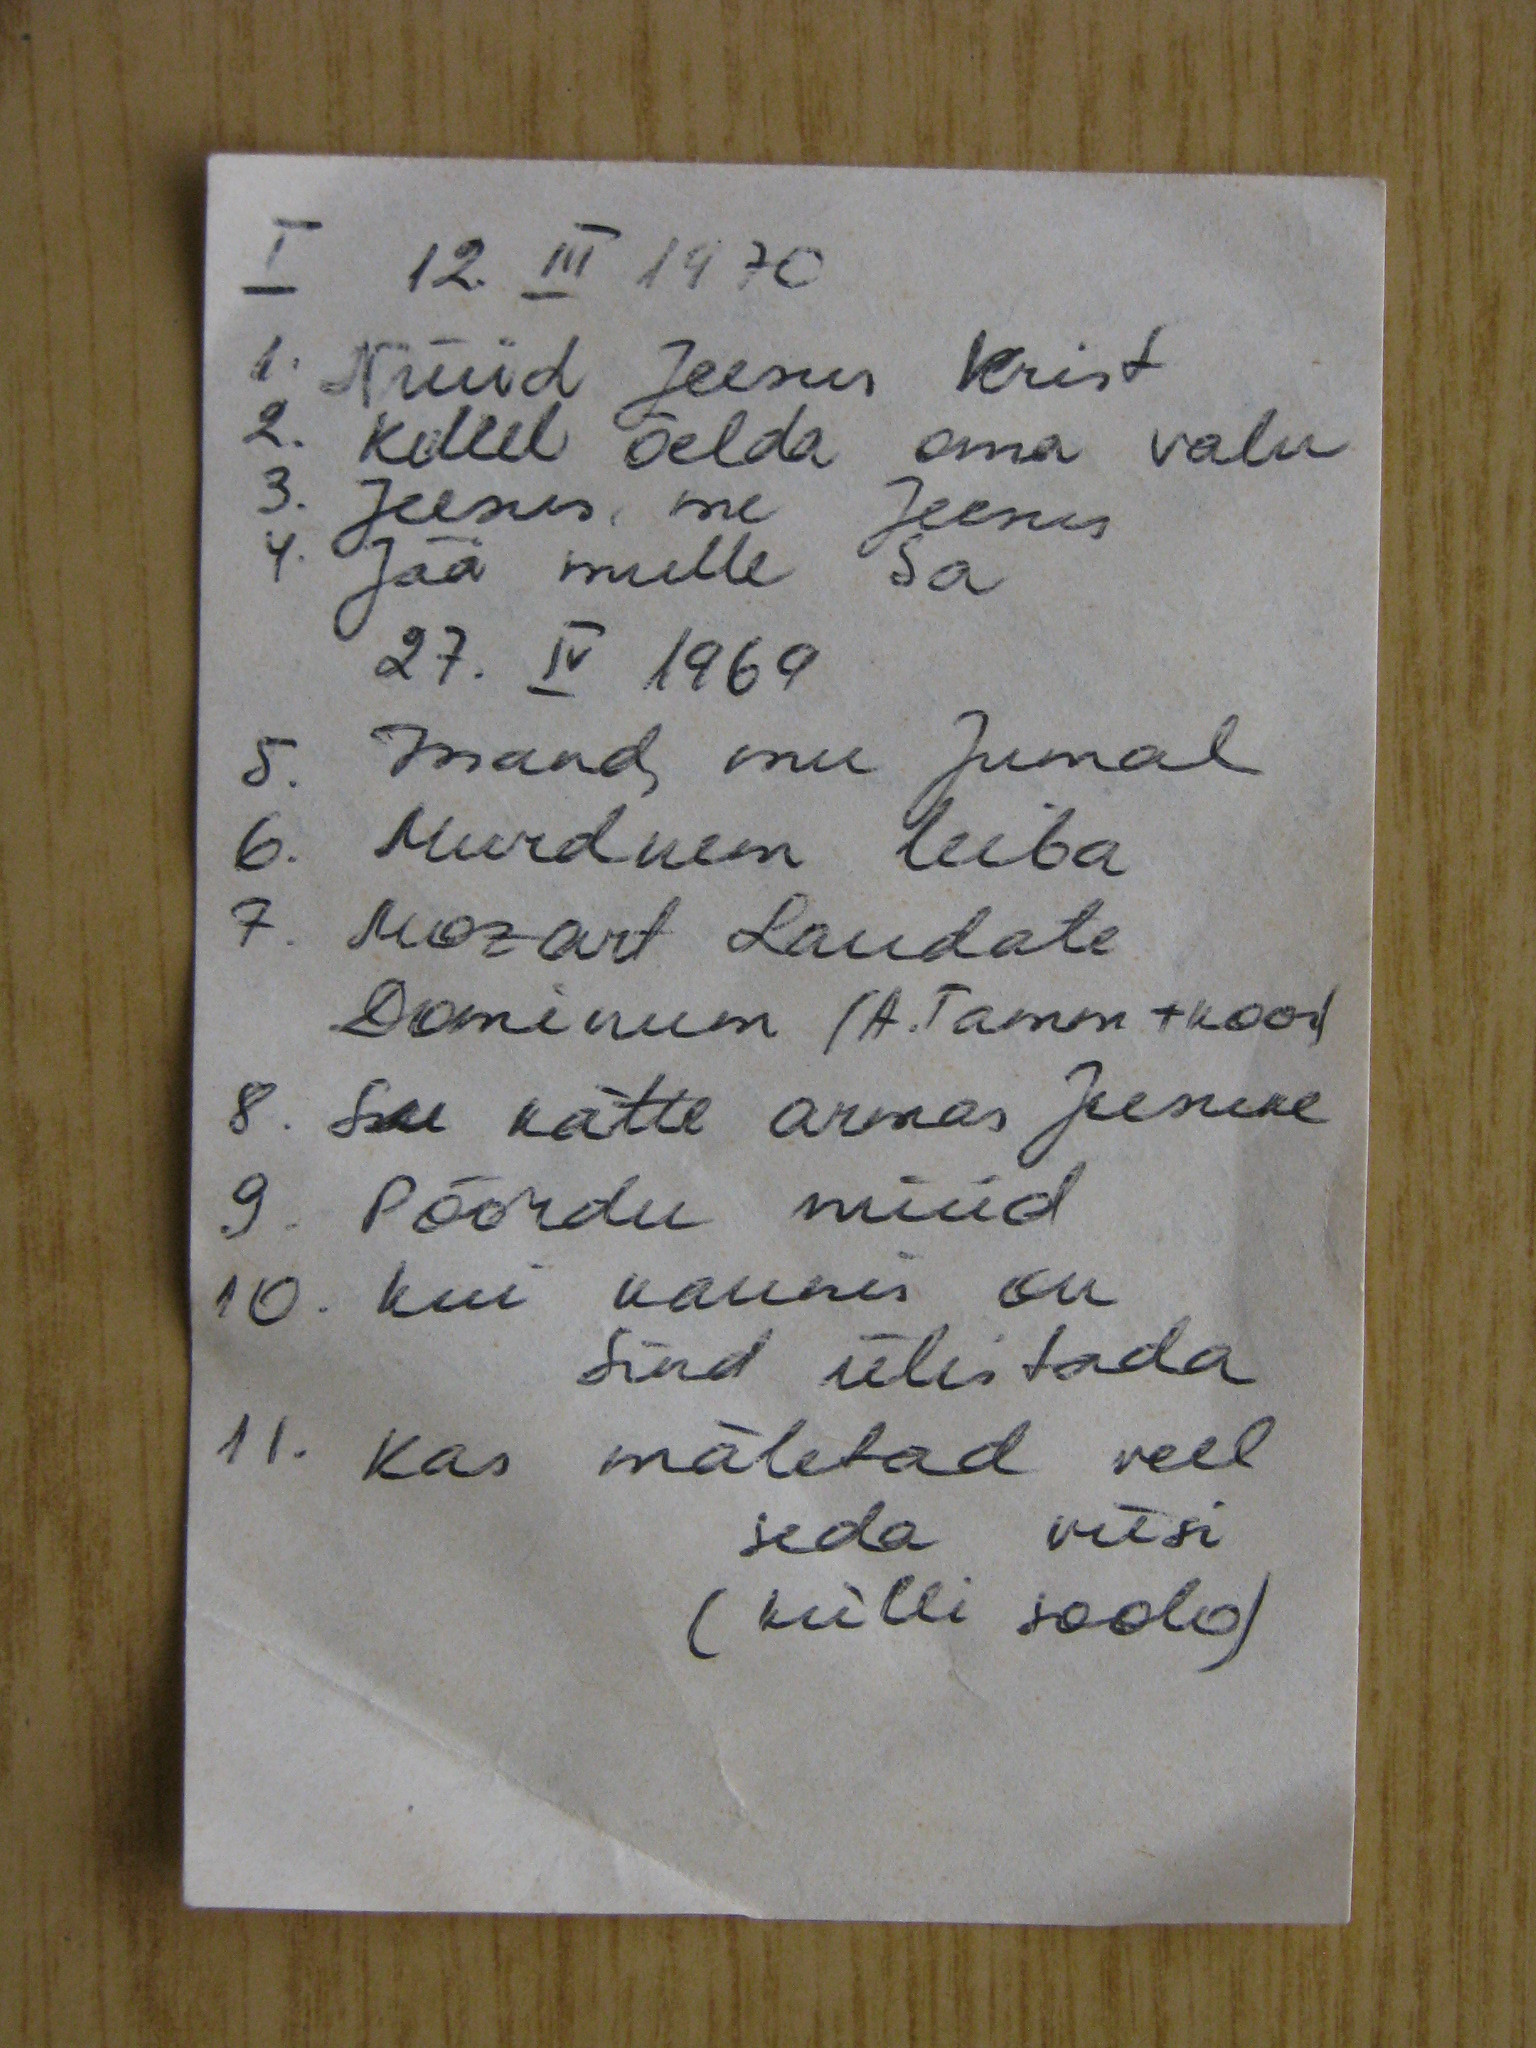 I 12. III 1970
1. Nüüd Jeesus Krist
2. Kellel öelda oma valu
3. Jeesus, me Jeesus
4. Jää mulle Sa
27. IV 1969
5. Issand, mu Jumal
6. Murdkem leiba
7. Mozart Laudate
Dominum (A. Tamm + koor)
8. Su kätte armas Jeesuke
9. Pöördu nüüd
10. Kui kaunis on
Sind ülistada
11. Kas mäletad veel
seda viisi
(Külli soolo)